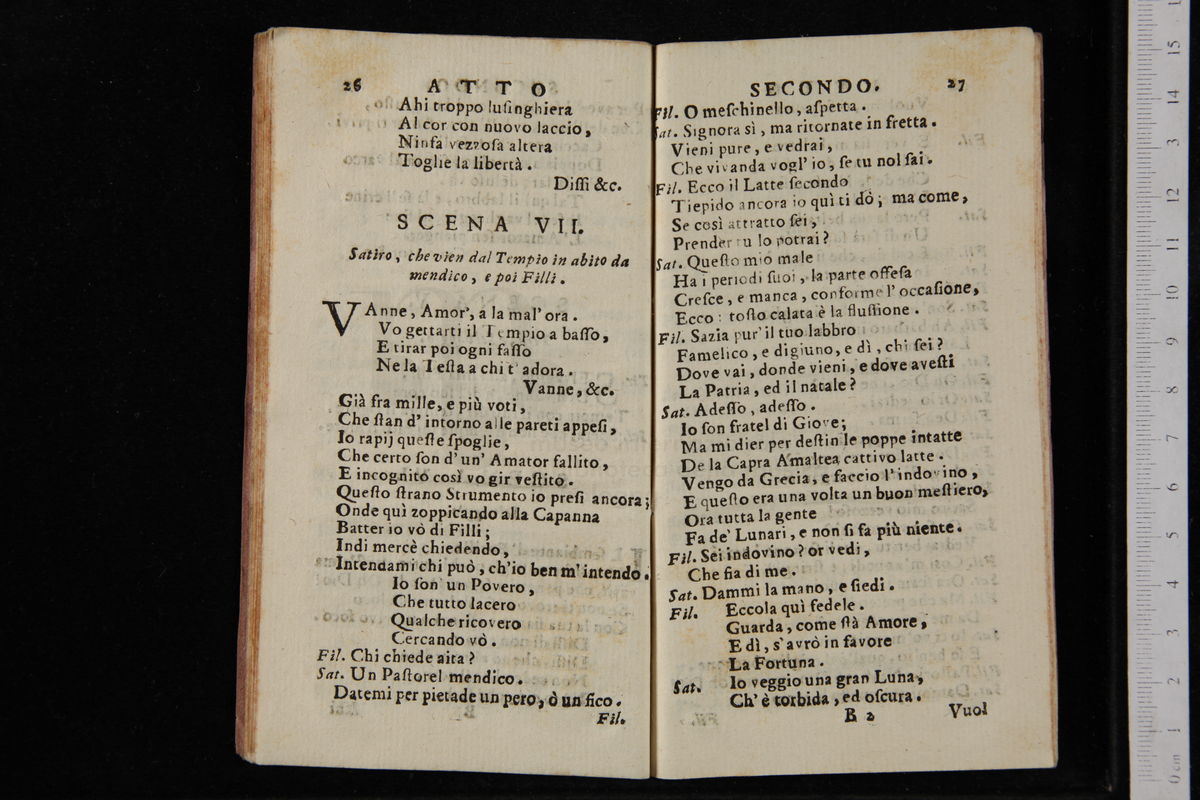 26 ATTO
Ahi troppo luſinghiera
Al cor con nuovo laccio,
Ninfa vezzoſa altera
Toglie la libertà.
Diſſi &c.
SCENA VII.
Satiro, che vien dal Tempio in abito da
mendico, e poi Filli.
VAnne, Amor', a la mal' ora.
Vo gettarti il Tempio a baſſo,
E tirar poi ogni ſaſſo
Ne la Teſta a chi t' adora.
Vanne, &c.
Già fra mille, e più voti,
Che ſtan d' intorno alle pareti appeſi,
Io rapij queſte ſpoglie,
Che certo ſon d' un' Amator fallito,
E incognito così vo gir veſtito.
Queſto ſtrano Strumento io preſi ancora;
Onde quì zoppicando alla Capanna
Batter io vò di Filli;
Indi mercè chiedendo,
Intendami chi può, ch'io ben m' intendo.
Io ſon un Povero,
Che tutto lacero
Qualche ricovero
Cercando vò.
Fil. Chi chiede aita?
Sat. Un Paſtorel mendico.
Datemi per pietade un pero, ò un fico.
Fil.
SECONDO. 27
Fil. O meſchinello, aſpetta.
Sat. Signora sì, ma ritornate in fretta.
Vieni pure, e vedrai,
Che vivanda vogl' io, ſe tu nol ſai.
Fil. Ecco il Latte ſecondo
Tiepido ancora io quì ti dò; ma come,
Se così attratto ſei,
Prender tu lo potrai?
Sat. Queſto mio male
Ha i periodi ſuoi, la parte offeſa
Creſce, e manca, conforme l' occaſione,
Ecco: toſto calata è la fluſſione.
Fil. Sazia pur' il tuo labbro
Famelico, e digiuno, e dì, chi ſei?
Dove vai, donde vieni, e dove aveſti
La Patria, ed il natale?
Sat. Adeſſo, adeſſo.
Io ſon fratel di Giove;
Ma mi dier per deſtin le poppe intatte
De la Capra Amaltea cattivo latte.
Vengo da Grecia, e faccio l' indovino,
E queſto era una volta un buon meſtiero,
Ora tutta la gente
Fa de' Lunari, e non ſi fa più niente.
Fil. Sei indovino? or vedi,
Che fia di me.
Sat. Dammi la mano, e ſiedi.
Fil. Eccola quì fedele.
Guarda, come ſtà Amore,
E dì, s' avrò in favore
La Fortuna.
Sat. Io veggio una gran Luna,
Ch' è torbida, ed oſcura.
B 2 Vuol